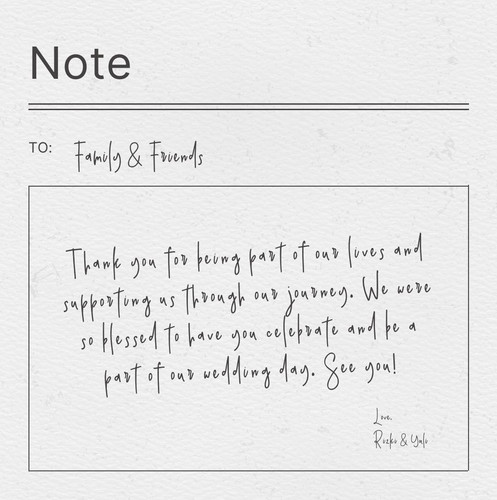 Note
TO: Family & Friends
Thank you for being part of our lives and
supporting us through our journey. We were
so blessed to have you celebrate and be a
part of our wedding day. See you!
Love,
Rizki & Yuli